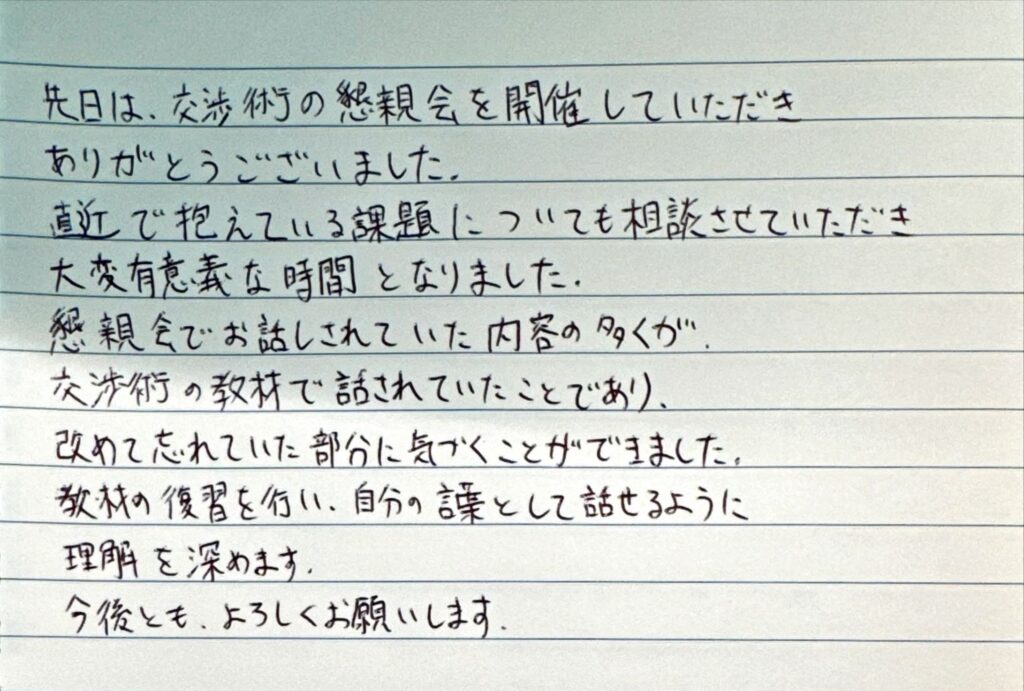 先日は、交渉術の懇親会を開催していただき
ありがとうございました。
直近で抱えている課題についても相談させていただき
大変有意義な時間となりました。
懇親会でお話しされていた内容の多くが、
交渉術の教材で話されていたことであり、
改めて忘れていた部分に気づくことができました。
教材の復習を行い、自分の言葉として話せるように
理解を深めます。
今後とも、よろしくお願いします。